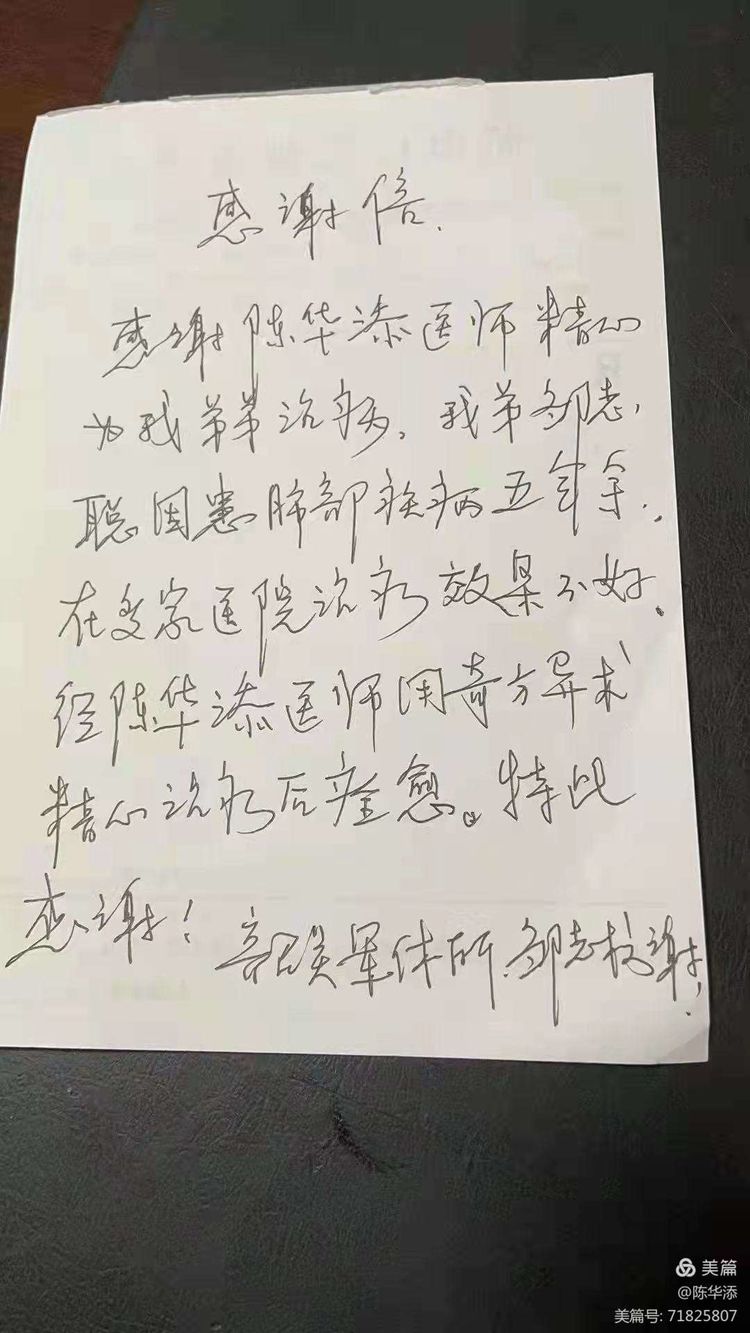 感谢信.
感谢陈华添医师精心
为我弟弟治病。我弟邹志
聪因患肺部疾病五年余.
在多家医院治疗效果不好。
经陈华添医师用奇方异术
精心治疗后痊愈。特此
感谢！
韶关军休所.邹志 谢
美篇
@陈华添
美篇号: 71825807